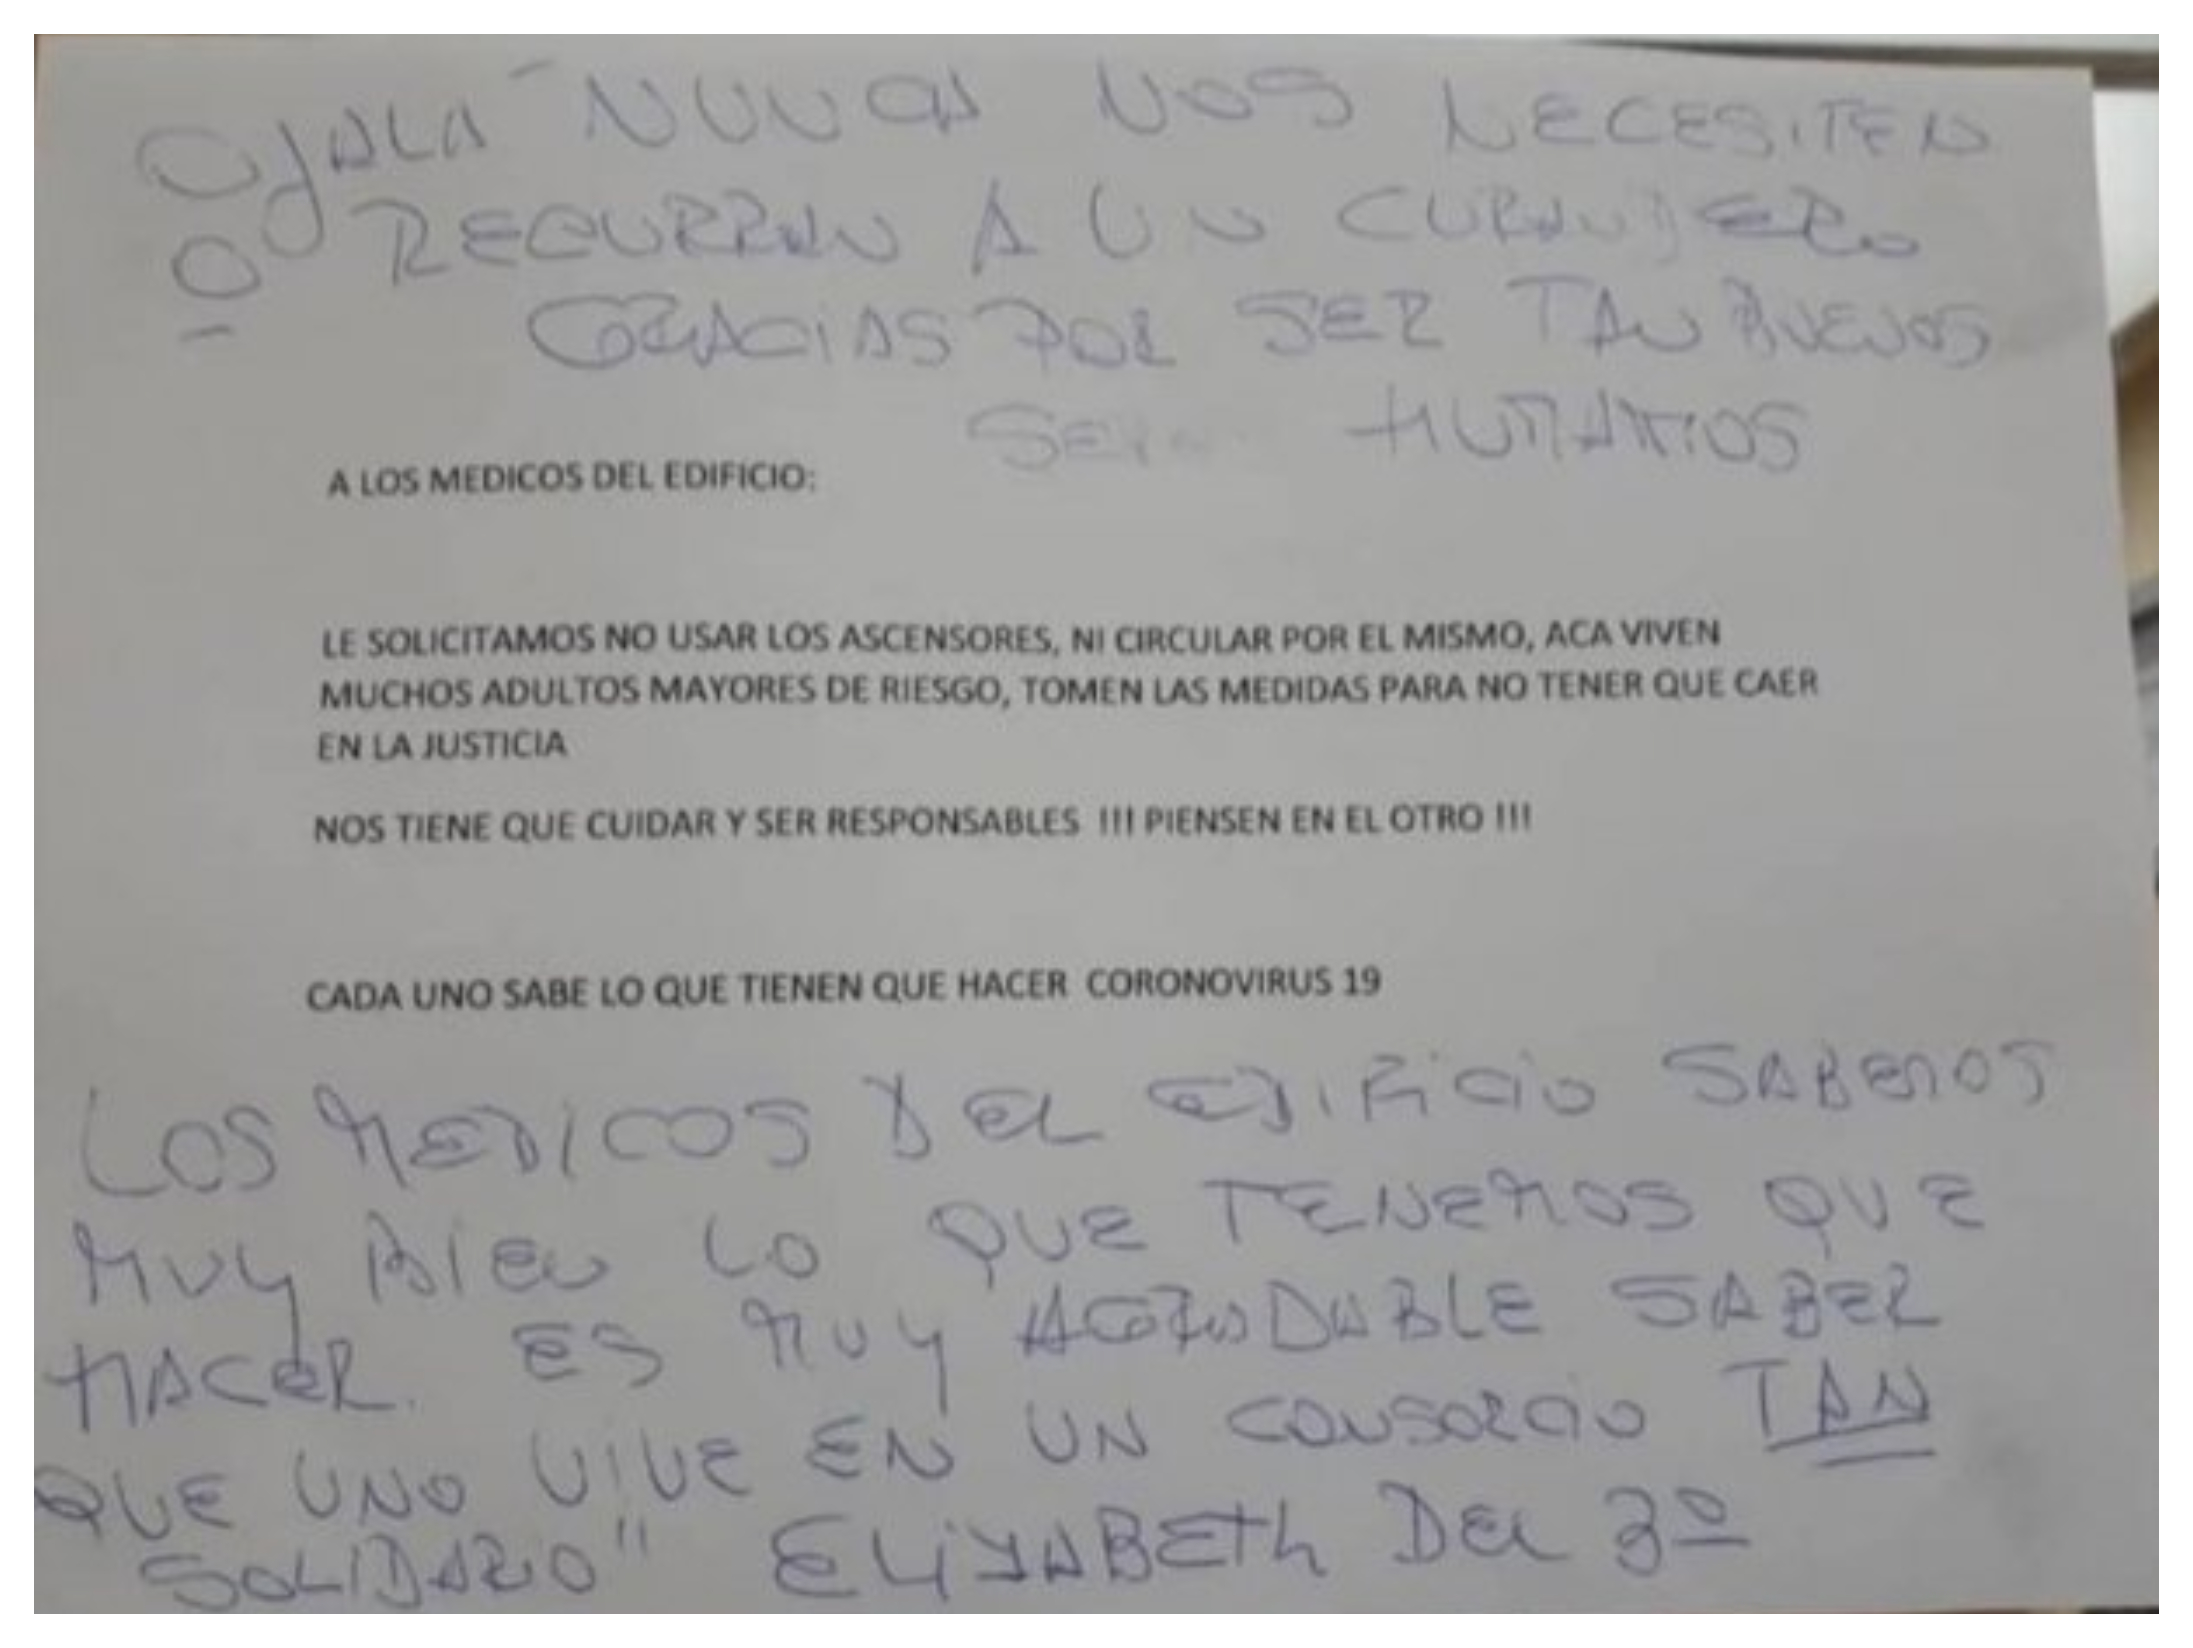 OJALÁ NUNCA NOS NECESITEN
O RECURRAN A UN CURANDERO
GRACIAS POR SER TAN BUENOS
HUMANOS
A LOS MEDICOS DEL EDIFICIO:
LE SOLICITAMOS NO USAR LOS ASCENSORES, NI CIRCULAR POR EL MISMO, ACA VIVEN
MUCHOS ADULTOS MAYORES DE RIESGO, TOMEN LAS MEDIDAS PARA NO TENER QUE CAER
EN LA JUSTICIA
NOS TIENE QUE CUIDAR Y SER RESPONSABLES !!! PIENSEN EN EL OTRO !!!
CADA UNO SABE LO QUE TIENEN QUE HACER CORONOVIRUS 19
LOS MEDICOS DEL EDIFICIO SABEMOS
MUY BIEN LO QUE TENEMOS QUE
HACER. ES MUY AGRADABLE SABER
QUE UNO VIVE EN UN CONSORCIO TAN
SOLIDARIO" ELIZABETH DEL 3º